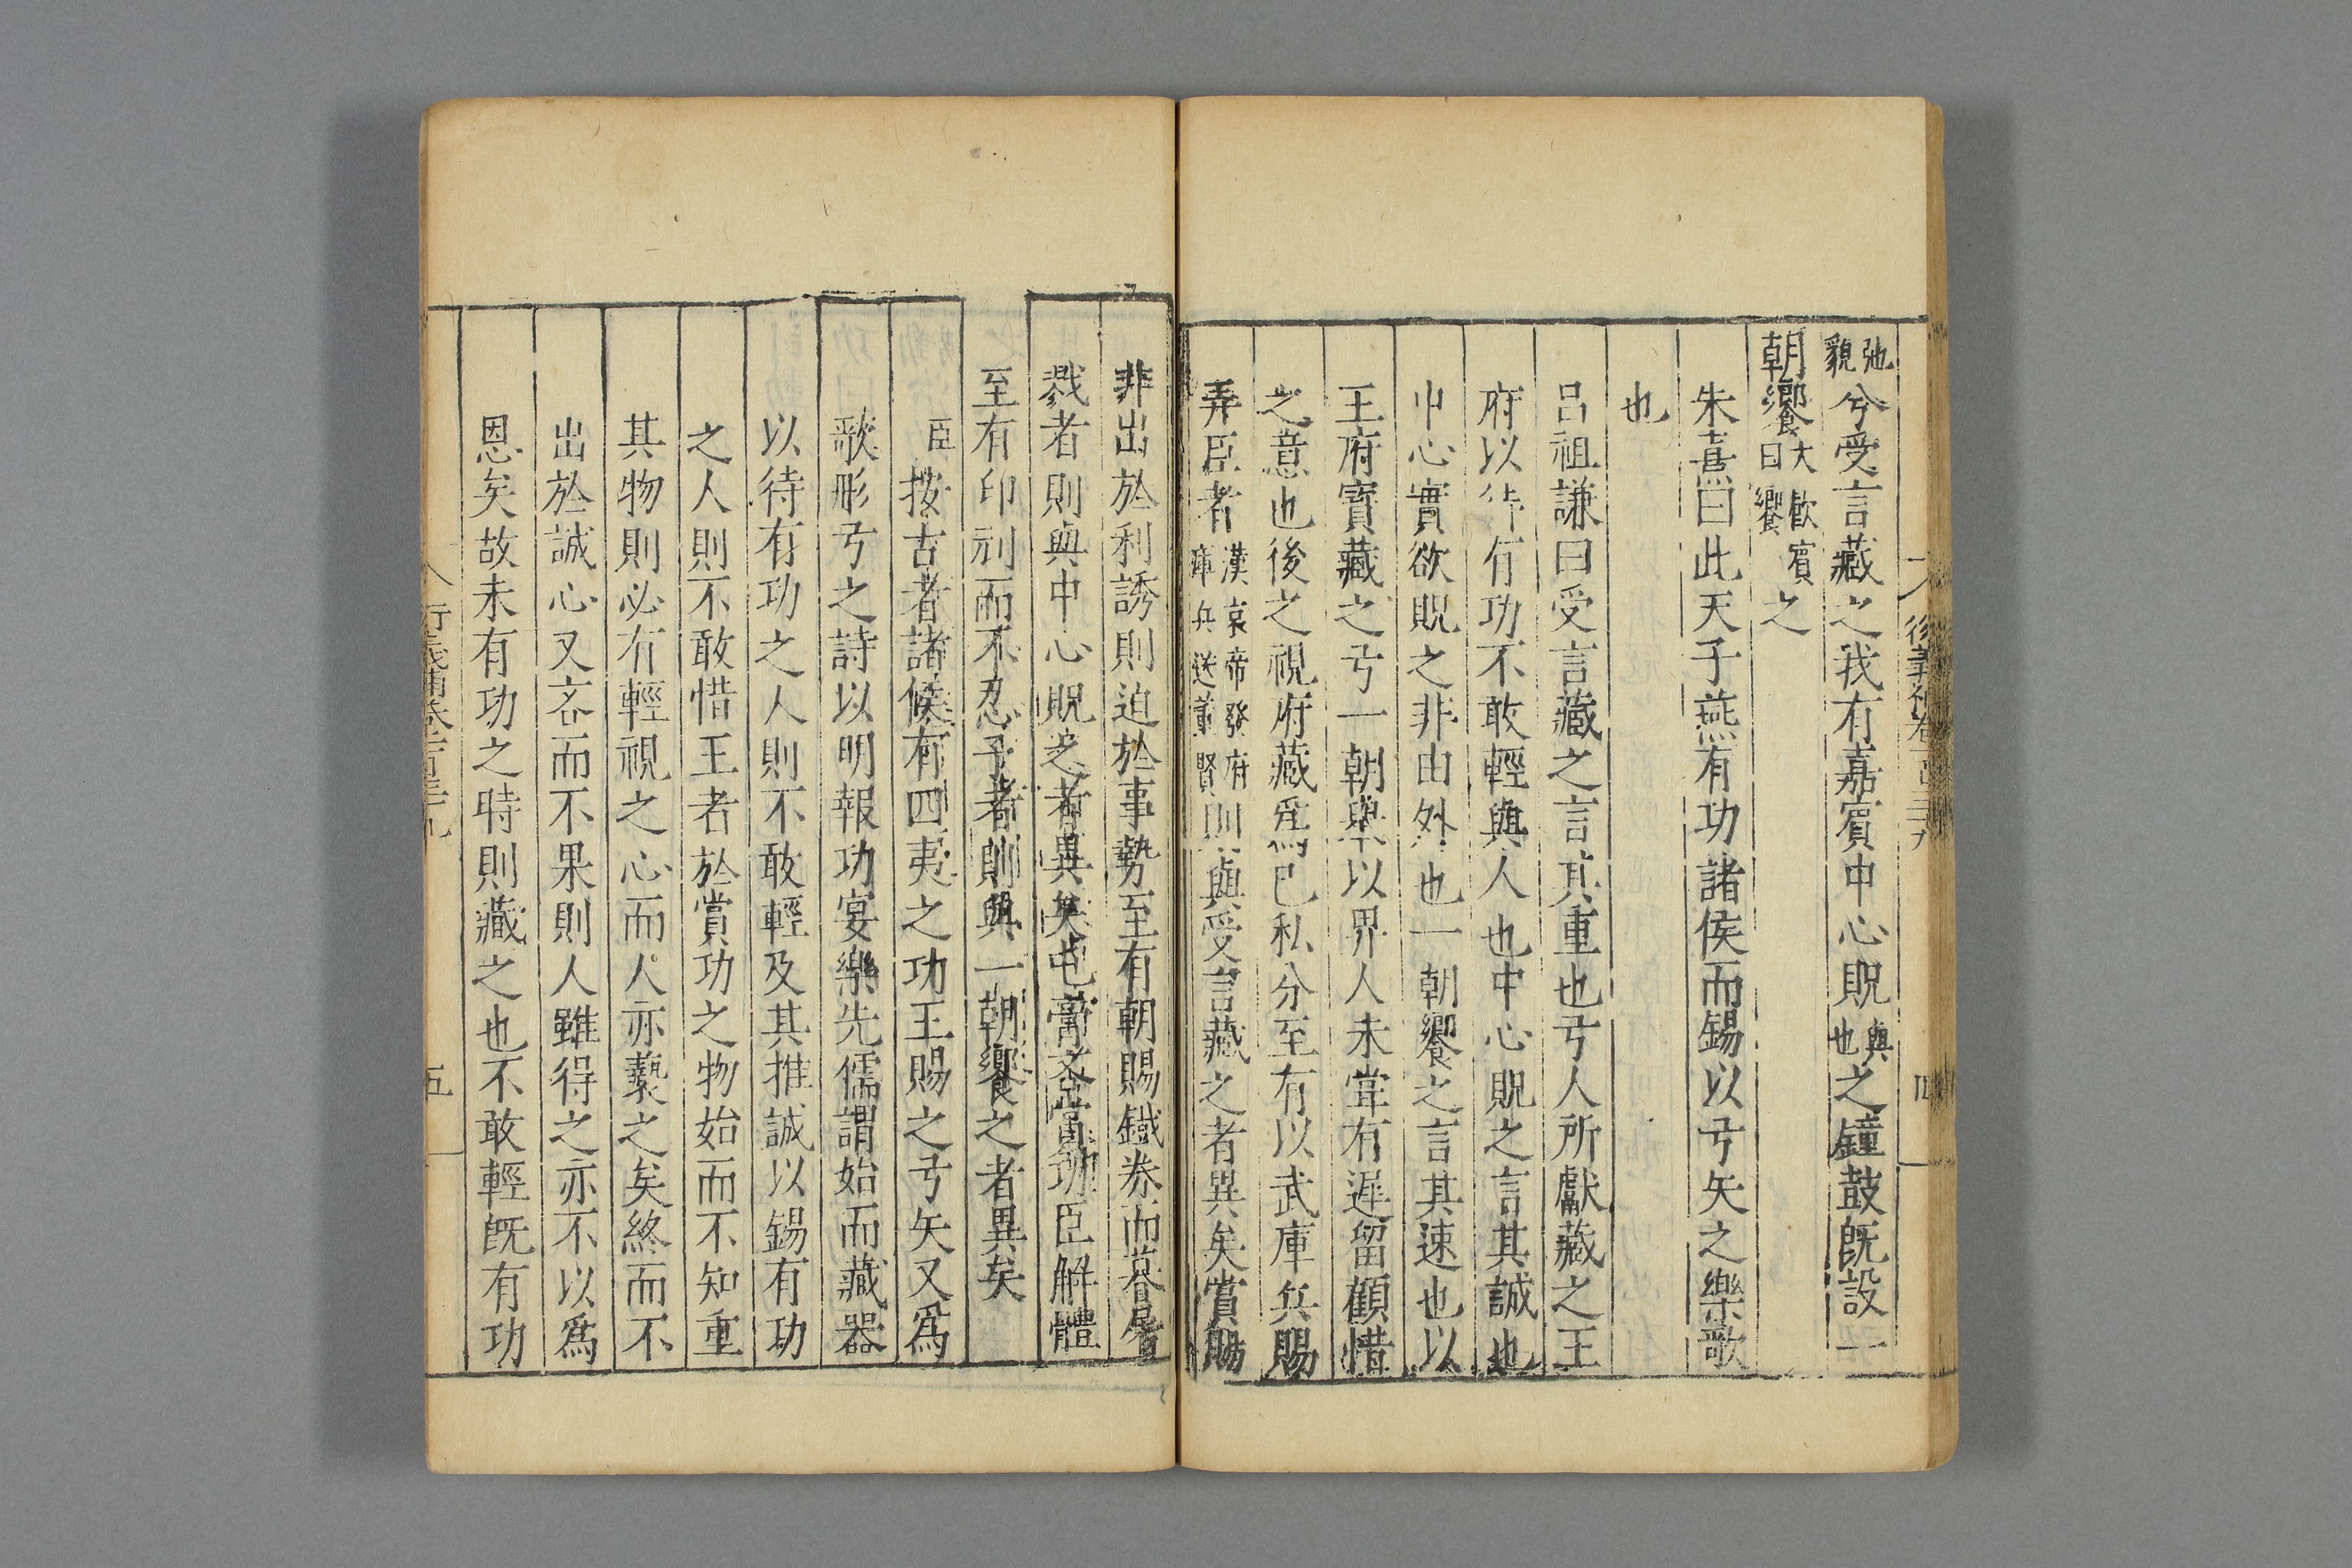 弛貌兮受言藏之我有嘉賓中心貺與也之鐘鼓旣設一
朝饗大飮賓曰饗之
朱熹曰此天子燕有功諸侯而錫以弓矢之樂歌
也
呂祖謙曰受言藏之言其重也弓人所獻藏之王
府以待有功不敢輕與人也中心貺之言其誠也
中心實欲貺之非由外也一朝饗之言其速也以
王府寶藏之弓一朝舉以畀人未甞有遲留顧惜
之意也後之視府藏爲己私分至有以武庫兵賜
弄臣者漢哀帝發府庫兵送董賢則與受言藏之者異矣賞賜
非出於利誘則迫於事勢至有朝賜鐵券而暮屠
戮者則與中心貺之者異矣屯膏吝賞功臣解體
至有印刓而不忍予者則與一朝饗之者異矣
臣按古者諸侯有四夷之功王賜之弓矢又爲
歌彤弓之詩以明報功宴樂先儒謂始而藏器
以待有功之人則不敢輕及其推誠以錫有功
之人則不敢惜王者於賞功之物始而不知重
其物則必有輕視之心而人亦褻之矣終而不
出於誠心又吝而不果則人雖得之亦不以爲
恩矣故未有功之時則藏之也不敢輕旣有功